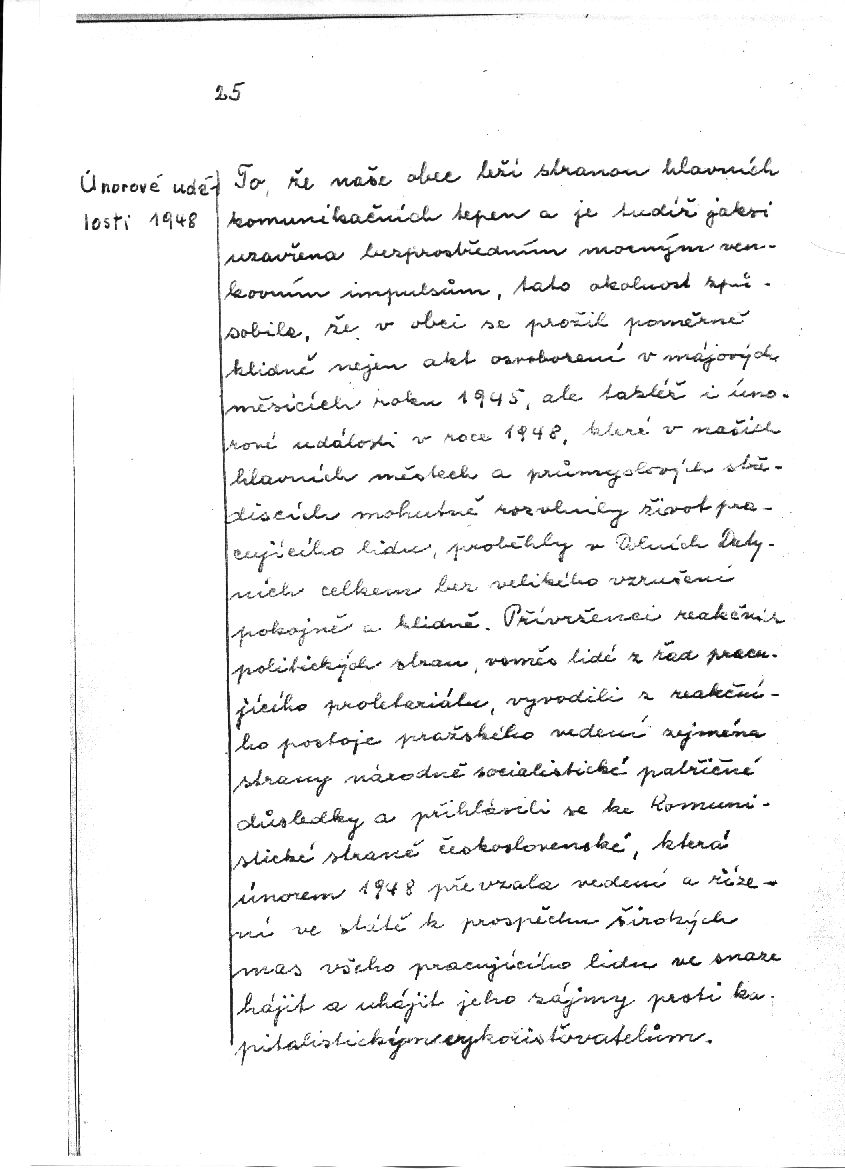 25
Únorové udá-
losti 1948
To, že naše obec leží stranou hlavních
komunikačních tepen a je tudíž jaksi
uzavřena bezprostředním mocným ven-
kovním impulsům, tato okolnost způ-
sobila, že v obci se prožil poměrně
klidně nejen akt osvobození v májových
měsících roku 1945, ale taktéž i úno-
rové události v roce 1948, které v našich
hlavních městech a průmyslových stře-
discích mohutně rozvlnily život pra-
cujícího lidu, proběhly v Dolních Daty-
ních celkem bez velikého vzrušení
pokojně a klidně. Přívrženci reakčních
politických stran, vesměs lidé z řad pracu-
jícího proletariátu, vyvodili z reakční-
ho postoje pražského vedení zejména
strany národně socialistické patřičné
důsledky a přihlásili se ke Komuni-
stické straně československé, která
únorem 1948 převzala vedení a říze-
ní ve státě k prospěchu širokých
mas všeho pracujícího lidu ve snaze
hájit a uhájit jeho zájmy proti ka-
pitalistickým vykořisťovatelům.